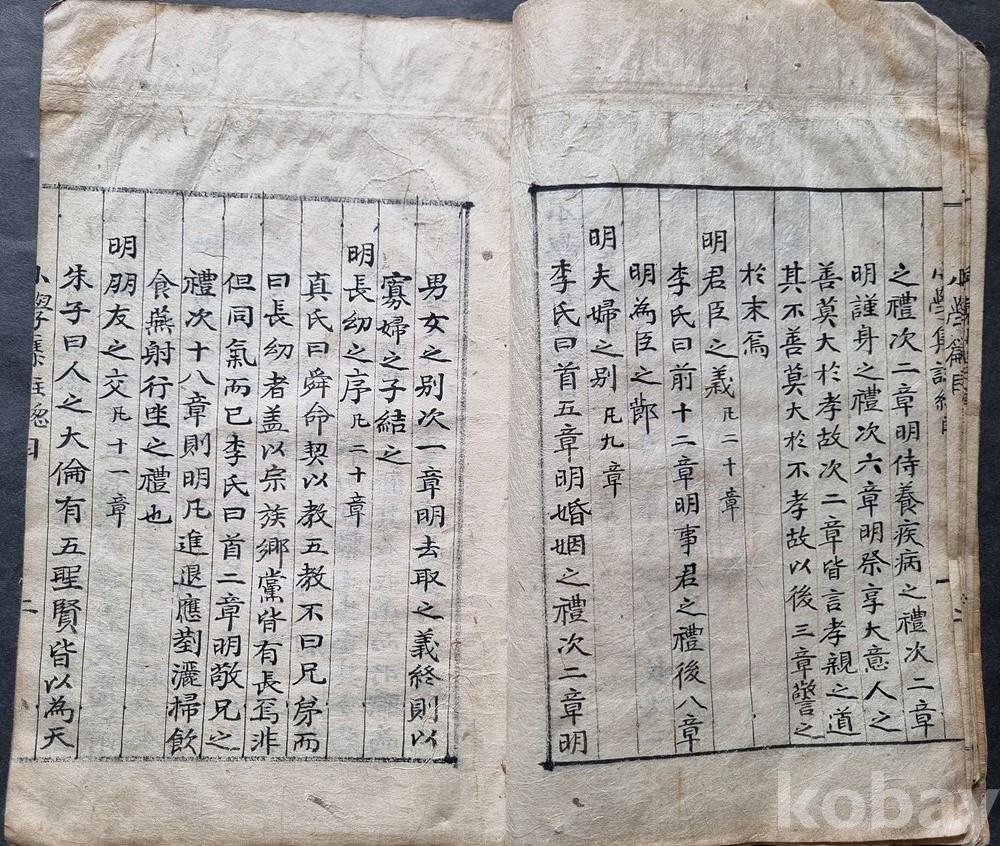 之禮次二章明侍養疾病之禮次二章
明謹身之禮次六章明祭享大意人之
善莫大於孝故次二章皆言孝親之道
其不善莫大於不孝故以後三章警之
於末焉
明君臣之義凡二十章
李氏曰前十二章明事君之禮後八章
明為臣之節
明夫婦之别凡九章
李氏曰首五章明婚姻之禮次二章明
男女之别次一章明去取之義終則以
寡婦之子結之
明長幼之序凡二十章
真氏曰舜命契以教五教不曰兄弟而
曰長幼者盖以宗族鄉黨皆有長焉非
但同氣而已李氏曰首二章明敬兄之
禮次十八章則明凡進退應對灑掃飲
食燕射行坐之禮也
明朋友之交凡十一章
朱子曰人之大倫有五聖賢皆以為天
小學集註總目
二
kobay